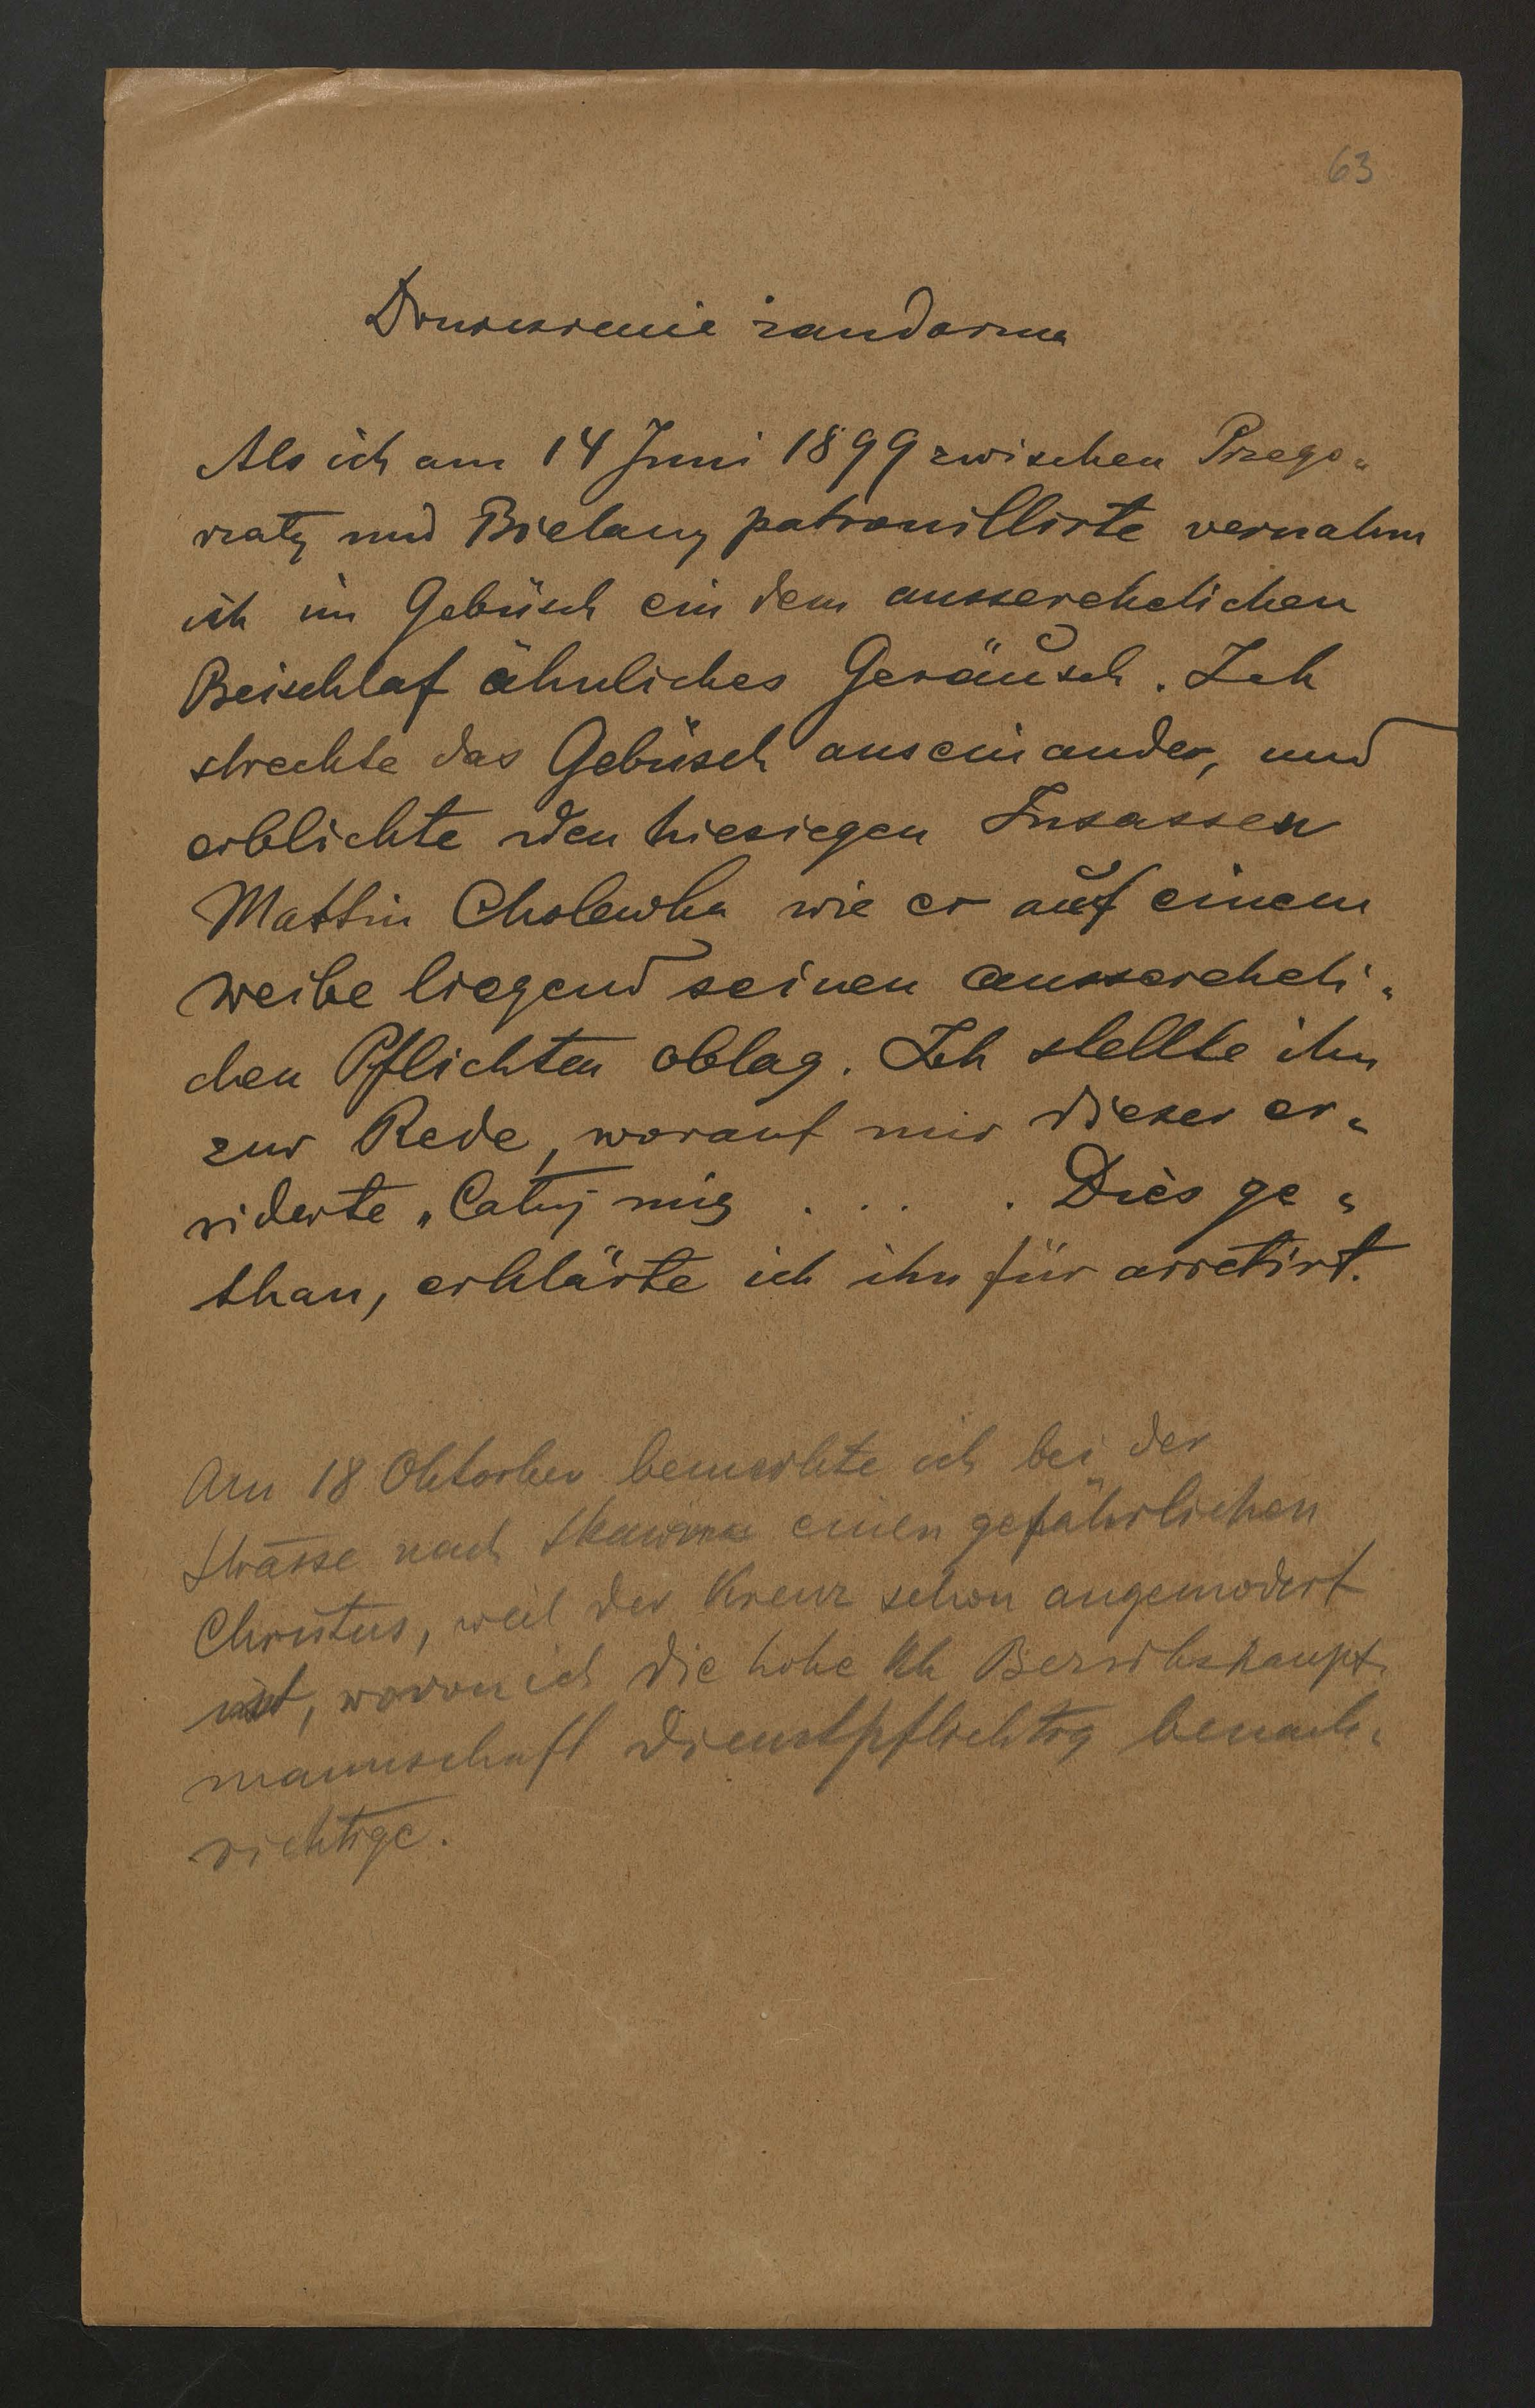 63
Doniesienie żandarma
Als ich am 14 Juni 1899 zwischen Przego„
rzaty und Bielany patrouillirte vernahm
ich im Gebüsch ein dem ausserehelichen
Beischlaf ähnliches Geräusch. Ich
streckte das Gebüsch auseinander, und
erblickte den hiesigen Insassen
Mattin Cholewka wie er auf einem
Weibe liegend seinen aussereheli„
chen Pflichten oblag. Ich stellte ihn
zur Rede, worauf mir dieser er„
widerte „Całuj mię . . . . Dies ge„
than, erklärte ich ihn für arretirt.
Am 18 Oktorber bemerkte ich bei der
Strasse nach Skawina einen gefährlichen
Christus, weil der Kreuz schon angemodert
ist, wovon ich die hohe kk Bezirkshaupt„
mannschaft dienstpflichtig benach„
richtige.